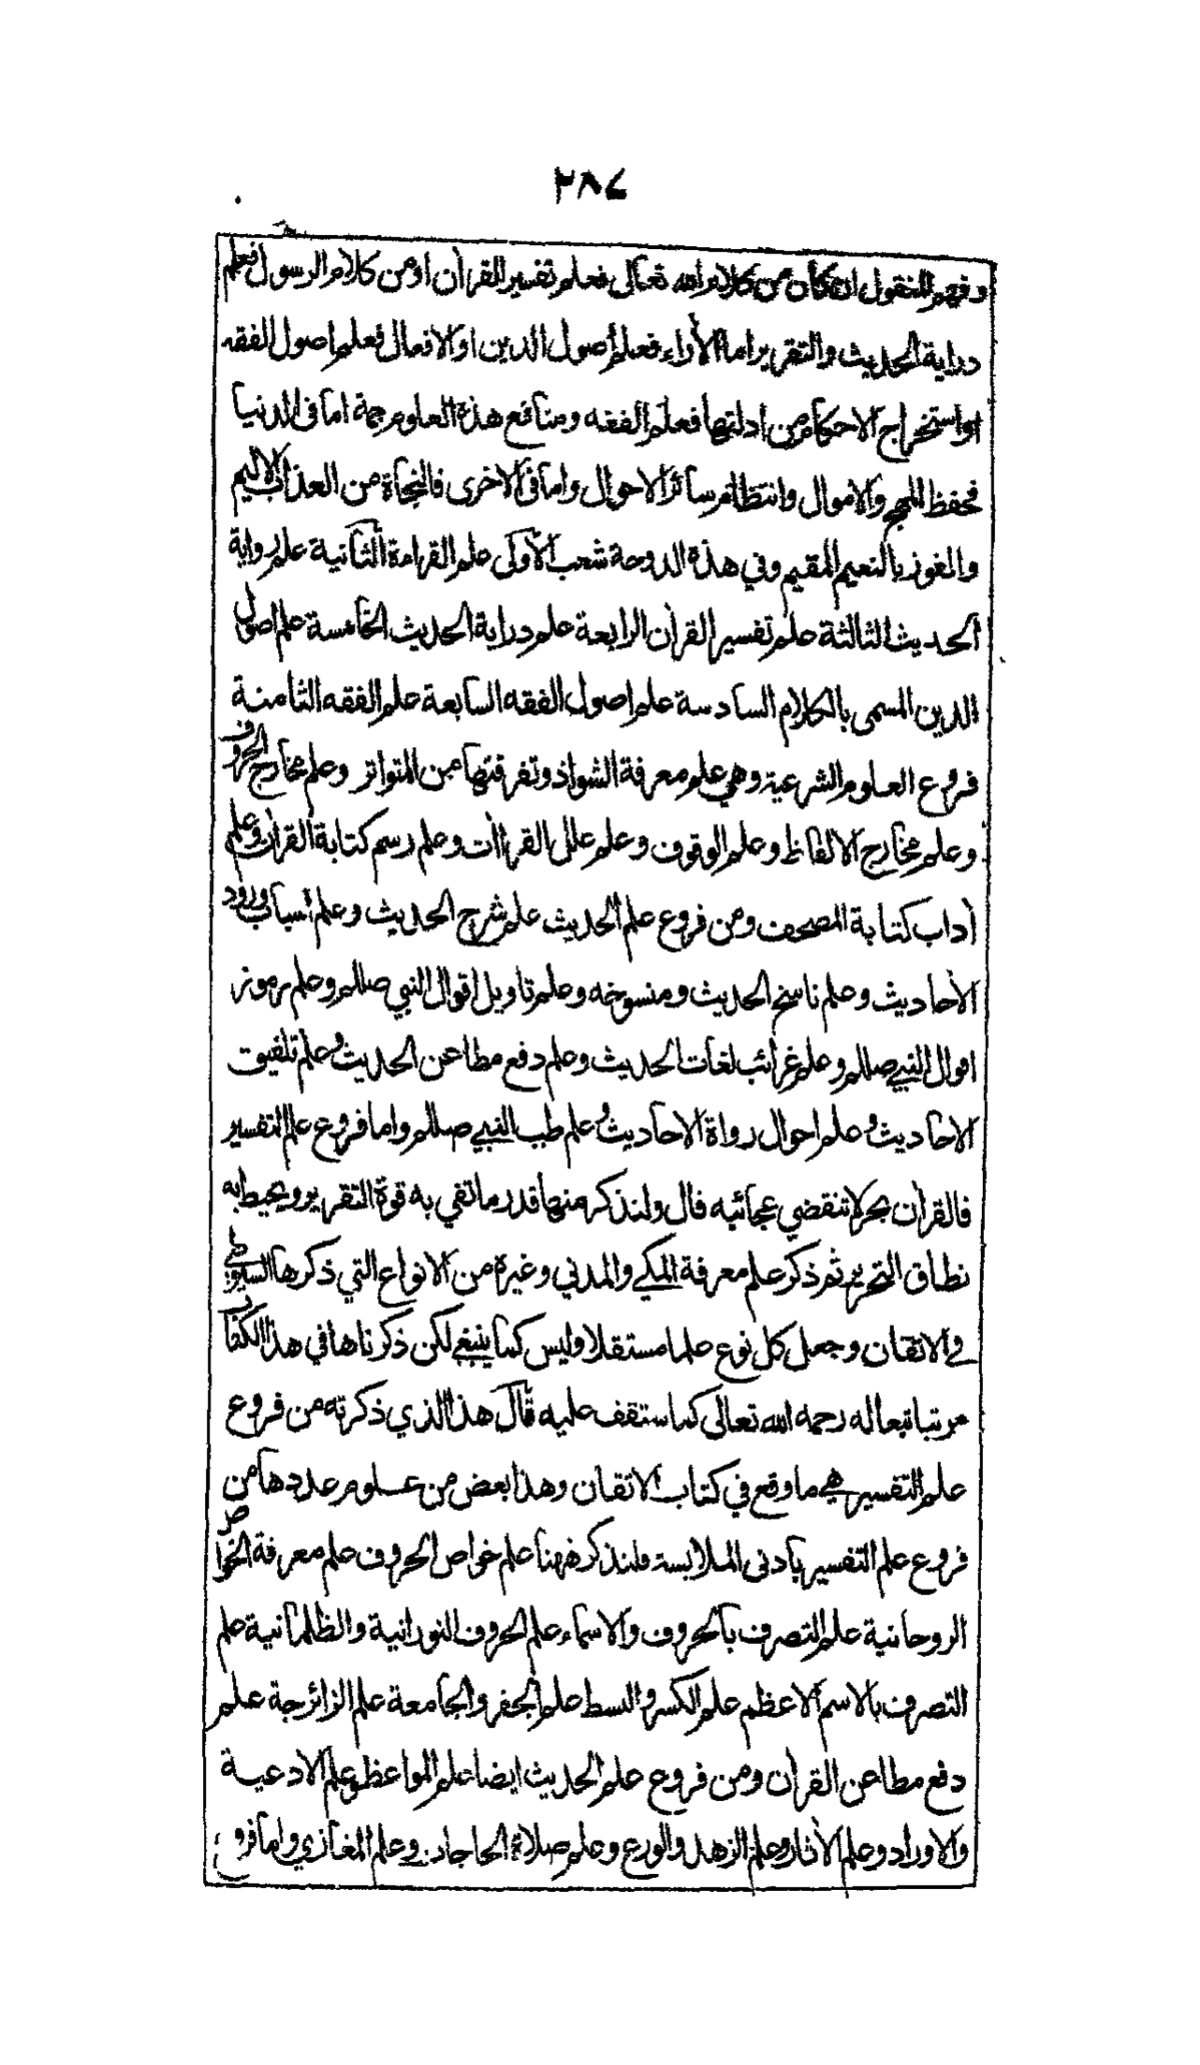 ٢٨٤
وفهم المنقول ان كان من كلام الله تعالى فعلم تفسير القرأن او من كلام الرسول فعلم
دراية الحديث والتقرير اما الأراء فعلم أصول الدين او الافعال فعلم اصول الفقه
او استخراج الاحكام من ادلتها فعلم الفقه ومنافع هذه العلوم جمة اما فى الدنيا
فحفظ المهج والاموال وانتظام سائر الاحوال واما فى الاخرى فالنجاة من العذاب الاليم
والفوز بالنعيم المقيم وفي هذه الدوحة شعب الأولى علم القراءة الثانية علم رواية
الحديث الثالثة علم تفسير القرأن الرابعة علم دراية الحديث الخامسة علم اصول
الدين المسمى بالكلام السادسة علم اصول الفقه السابعة علم الفقه الثامنة
فروع العلوم الشرعية وهي علم معرفة الشواذ وتفرقتها من المتواتر وعلم مخارج الحروف
وعلم مخارج الالفاظ وعلم الوقوف وعلم علل القراأت وعلم رسم كتابة القرأن وعلم
أداب كتابة المصحف ومن فروع علم الحديث علم شرح الحديث وعلم أسباب ورود
الأحاديث وعلم ناسخ الحديث ومنسوخه وعلم تاويل اقوال النبي صللم وعلم رموز
اقوال النبي صللم وعلم غرائب لغات الحديث وعلم دفع مطاعن الحديث وعلم تلفيق
الاحاديث وعلم احوال رواة الاحاديث وعلم طب النبي صللم واما فروع علم التفسير
فالقرأن بحر لا تنقضي عجائبه قال ولنذكر منها قدر ما تفي به قوة التقرير ويحيط به
نطاق التحرير ثم ذكر علم معرفة المكي والمدني وغيره من الانواع التي ذكرها السيوطي
في الاتقان وجعل كل نوع علما مستقلا وليس كما ينبغي لكن ذكرناها في هذا الكتاب
مرتبا تبعا له رحمه الله تعالى كما ستقف عليه قال هذا الذي ذكرته من فروع
علم التفسير هي ما وقع في كتاب الاتقان وهذا بعض من علوم عددها من
فروع علم التفسير بأدنى الملابسة ولنذكر ههنا علم خواص الحروف علم معرفة الخواص
الروحانية علم التصرف بالحروف والاسماء علم الحروف النورانية والظلمانية علم
التصرف بالاسم الاعظم علم الكسر والبسط علم الجفر والجامعة علم الزائرجة علم
دفع مطاعن القرأن ومن فروع علم الحديث ايضا علم المواعظ وعلم الادعية
والاوراد وعلم الأثار وعلم الزهد والورع وعلم صلاة الحاجات وعلم المغازي واما فروع